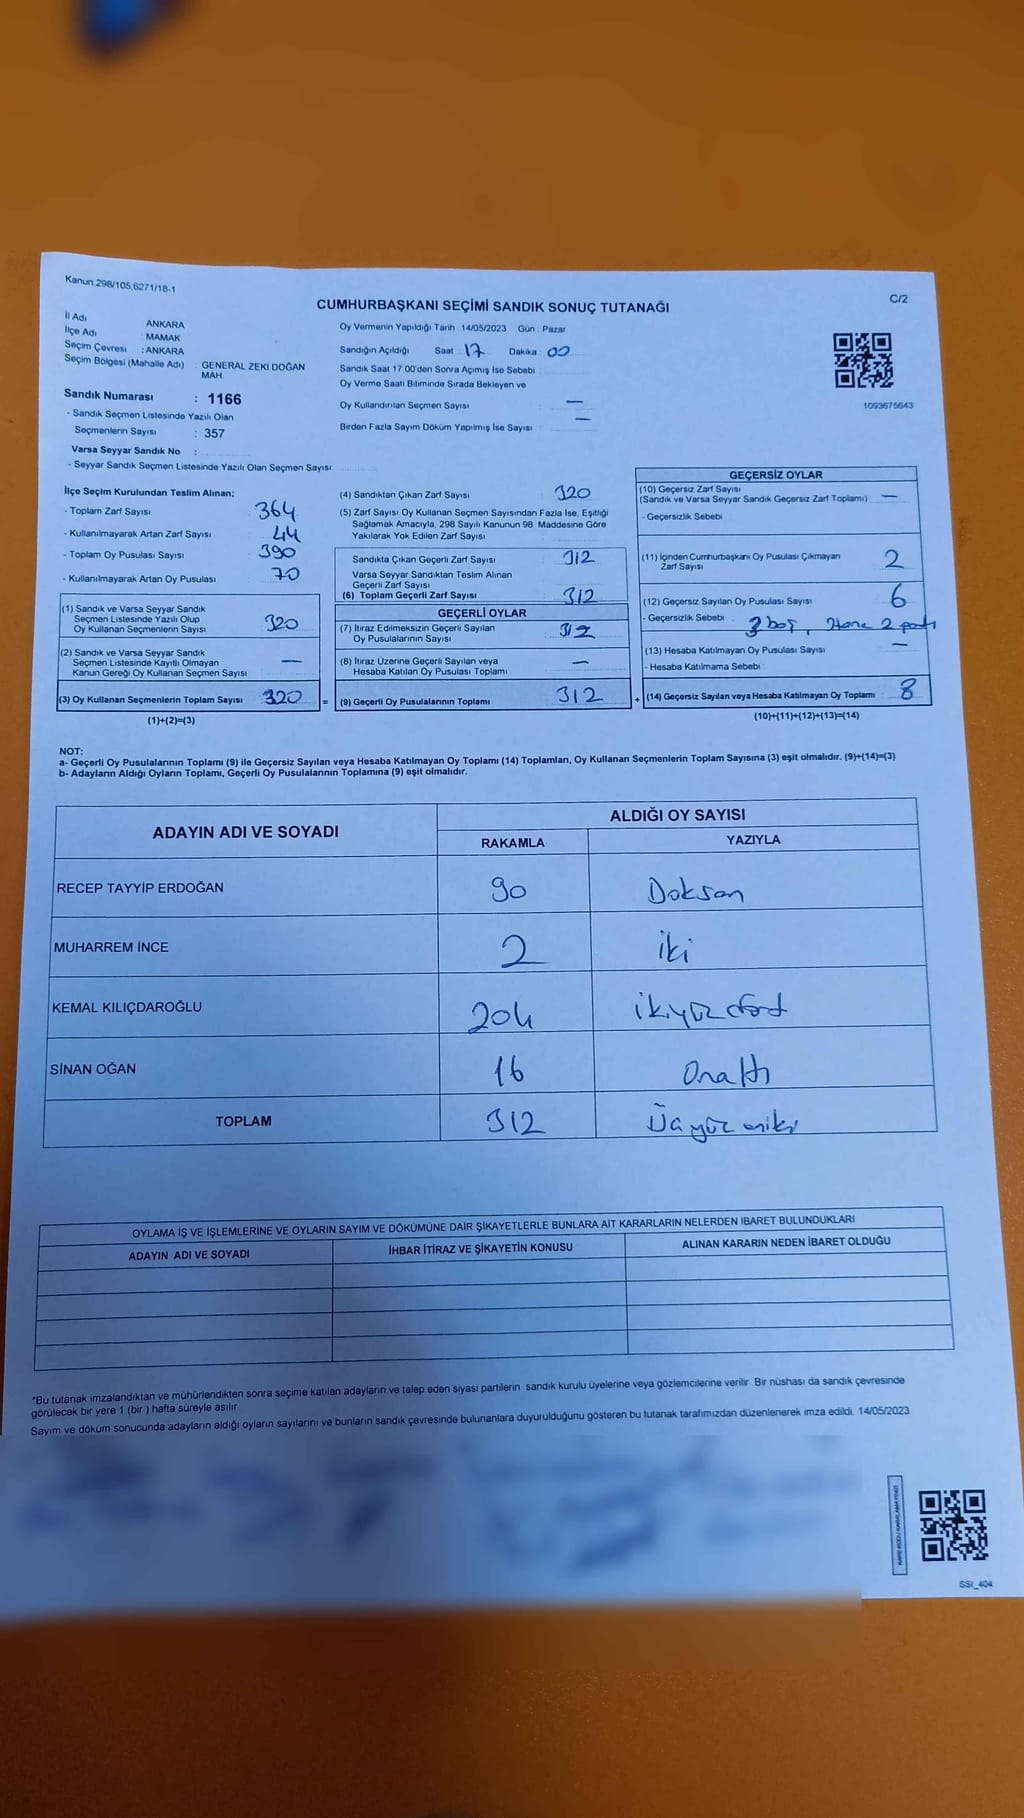 Kanun:298/105;6271/18-1
C/2
CUMHURBAŞKANI SEÇİMİ SANDIK SONUÇ TUTANAĞI
İl Adı ANKARA
İlçe Adı MAMAK
Seçim Çevresi : ANKARA
Seçim Bölgesi (Mahalle Adı) GENERAL ZEKİ DOĞAN MAH.
Sandık Numarası : 1166
- Sandık Seçmen Listesinde Yazılı Olan
Seçmenlerin Sayısı : 357
Varsa Seyyar Sandık No :
- Seyyar Sandık Seçmen Listesinde Yazılı Olan Seçmen Sayısı
Oy Vermenin Yapıldığı Tarih 14/05/2023 Gün : Pazar
Sandığın Açıldığı Saat : 17 Dakika : 00
Sandık Saat 17.00'den Sonra Açımış İse Sebebi :
Oy Verme Saati Bitiminde Sırada Bekleyen ve
Oy Kullandırılan Seçmen Sayısı : —
Birden Fazla Sayım Döküm Yapılmış İse Sayısı : —
1093675643
İlçe Seçim Kurulundan Teslim Alınan;
- Toplam Zarf Sayısı : 364
- Kullanılmayarak Artan Zarf Sayısı : 44
- Toplam Oy Pusulası Sayısı : 390
- Kullanılmayarak Artan Oy Pusulası : 70
(1) Sandık ve Varsa Seyyar Sandık
Seçmen Listesinde Yazılı Olup
Oy Kullanan Seçmenlerin Sayısı 320
(2) Sandık ve Varsa Seyyar Sandık
Seçmen Listesinde Kayıtlı Olmayan
Kanun Gereği Oy Kullanan Seçmen Sayısı —
(3) Oy Kullanan Seçmenlerin Toplam Sayısı 320 =
(1)+(2)=(3)
(4) Sandıktan Çıkan Zarf Sayısı : 320
(5) Zarf Sayısı Oy Kullanan Seçmen Sayısından Fazla İse, Eşitliği
Sağlamak Amacıyla, 298 Sayılı Kanunun 98. Maddesine Göre
Yakılarak Yok Edilen Zarf Sayısı
Sandıkta Çıkan Geçerli Zarf Sayısı : 312
Varsa Seyyar Sandıktan Teslim Alınan
Geçerli Zarf Sayısı
(6) Toplam Geçerli Zarf Sayısı : 312
GEÇERLİ OYLAR
(7) İtiraz Edilmeksizin Geçerli Sayılan
Oy Pusulalarının Sayısı : 312
(8) İtiraz Üzerine Geçerli Sayılan veya
Hesaba Katılan Oy Pusulası Toplamı —
(9) Geçerli Oy Pusulalarının Toplamı 312 +
GEÇERSİZ OYLAR
(10) Geçersiz Zarf Sayısı
(Sandık ve Varsa Seyyar Sandık Geçersiz Zarf Toplamı) —
- Geçersizlik Sebebi
(11) İçinden Cumhurbaşkanı Oy Pusulası Çıkmayan
Zarf Sayısı 2
(12) Geçersiz Sayılan Oy Pusulası Sayısı 6
- Geçersizlik Sebebi : boş, 2
(13) Hesaba Katılmayan Oy Pusulası Sayısı —
- Hesaba Katılmama Sebebi
(14) Geçersiz Sayılan veya Hesaba Katılmayan Oy Toplamı 8
(10)+(11)+(12)+(13)=(14)
NOT:
a- Geçerli Oy Pusulalarının Toplamı (9) ile Geçersiz Sayılan veya Hesaba Katılmayan Oy Toplamı (14) Toplamları, Oy Kullanan Seçmenlerin Toplam Sayısına (3) eşit olmalıdır. (9)+(14)=(3)
b- Adayların Aldığı Oyların Toplamı, Geçerli Oy Pusulalarının Toplamına (9) eşit olmalıdır.
ADAYIN ADI VE SOYADI ALDIĞI OY SAYISI
RAKAMLA YAZIYLA
RECEP TAYYİP ERDOĞAN 90 Doksan
MUHARREM İNCE 2 iki
KEMAL KILIÇDAROĞLU 204 ikiyüzdört
SİNAN OĞAN 16 Onaltı
TOPLAM 312 Üçyüzoniki
OYLAMA İŞ VE İŞLEMLERİNE VE OYLARIN SAYIM VE DÖKÜMÜNE DAİR ŞİKAYETLERLE BUNLARA AİT KARARLARIN NELERDEN İBARET BULUNDUKLARI
ADAYIN ADI VE SOYADI İHBAR İTİRAZ VE ŞİKAYETİN KONUSU ALINAN KARARIN NEDEN İBARET OLDUĞU
*Bu tutanak imzalandıktan ve mühürlendikten sonra seçime katılan adayların ve talep eden siyasi partilerin sandık kurulu üyelerine veya gözlemcilerine verilir. Bir nüshası da sandık çevresinde
görülecek bir yere 1 (bir ) hafta süreyle asılır.
Sayım ve döküm sonucunda adayların aldığı oyların sayılarını ve bunların sandık çevresinde bulunanlara duyurulduğunu gösteren bu tutanak tarafımızdan düzenlenerek imza edildi. 14/05/2023
SSI_404